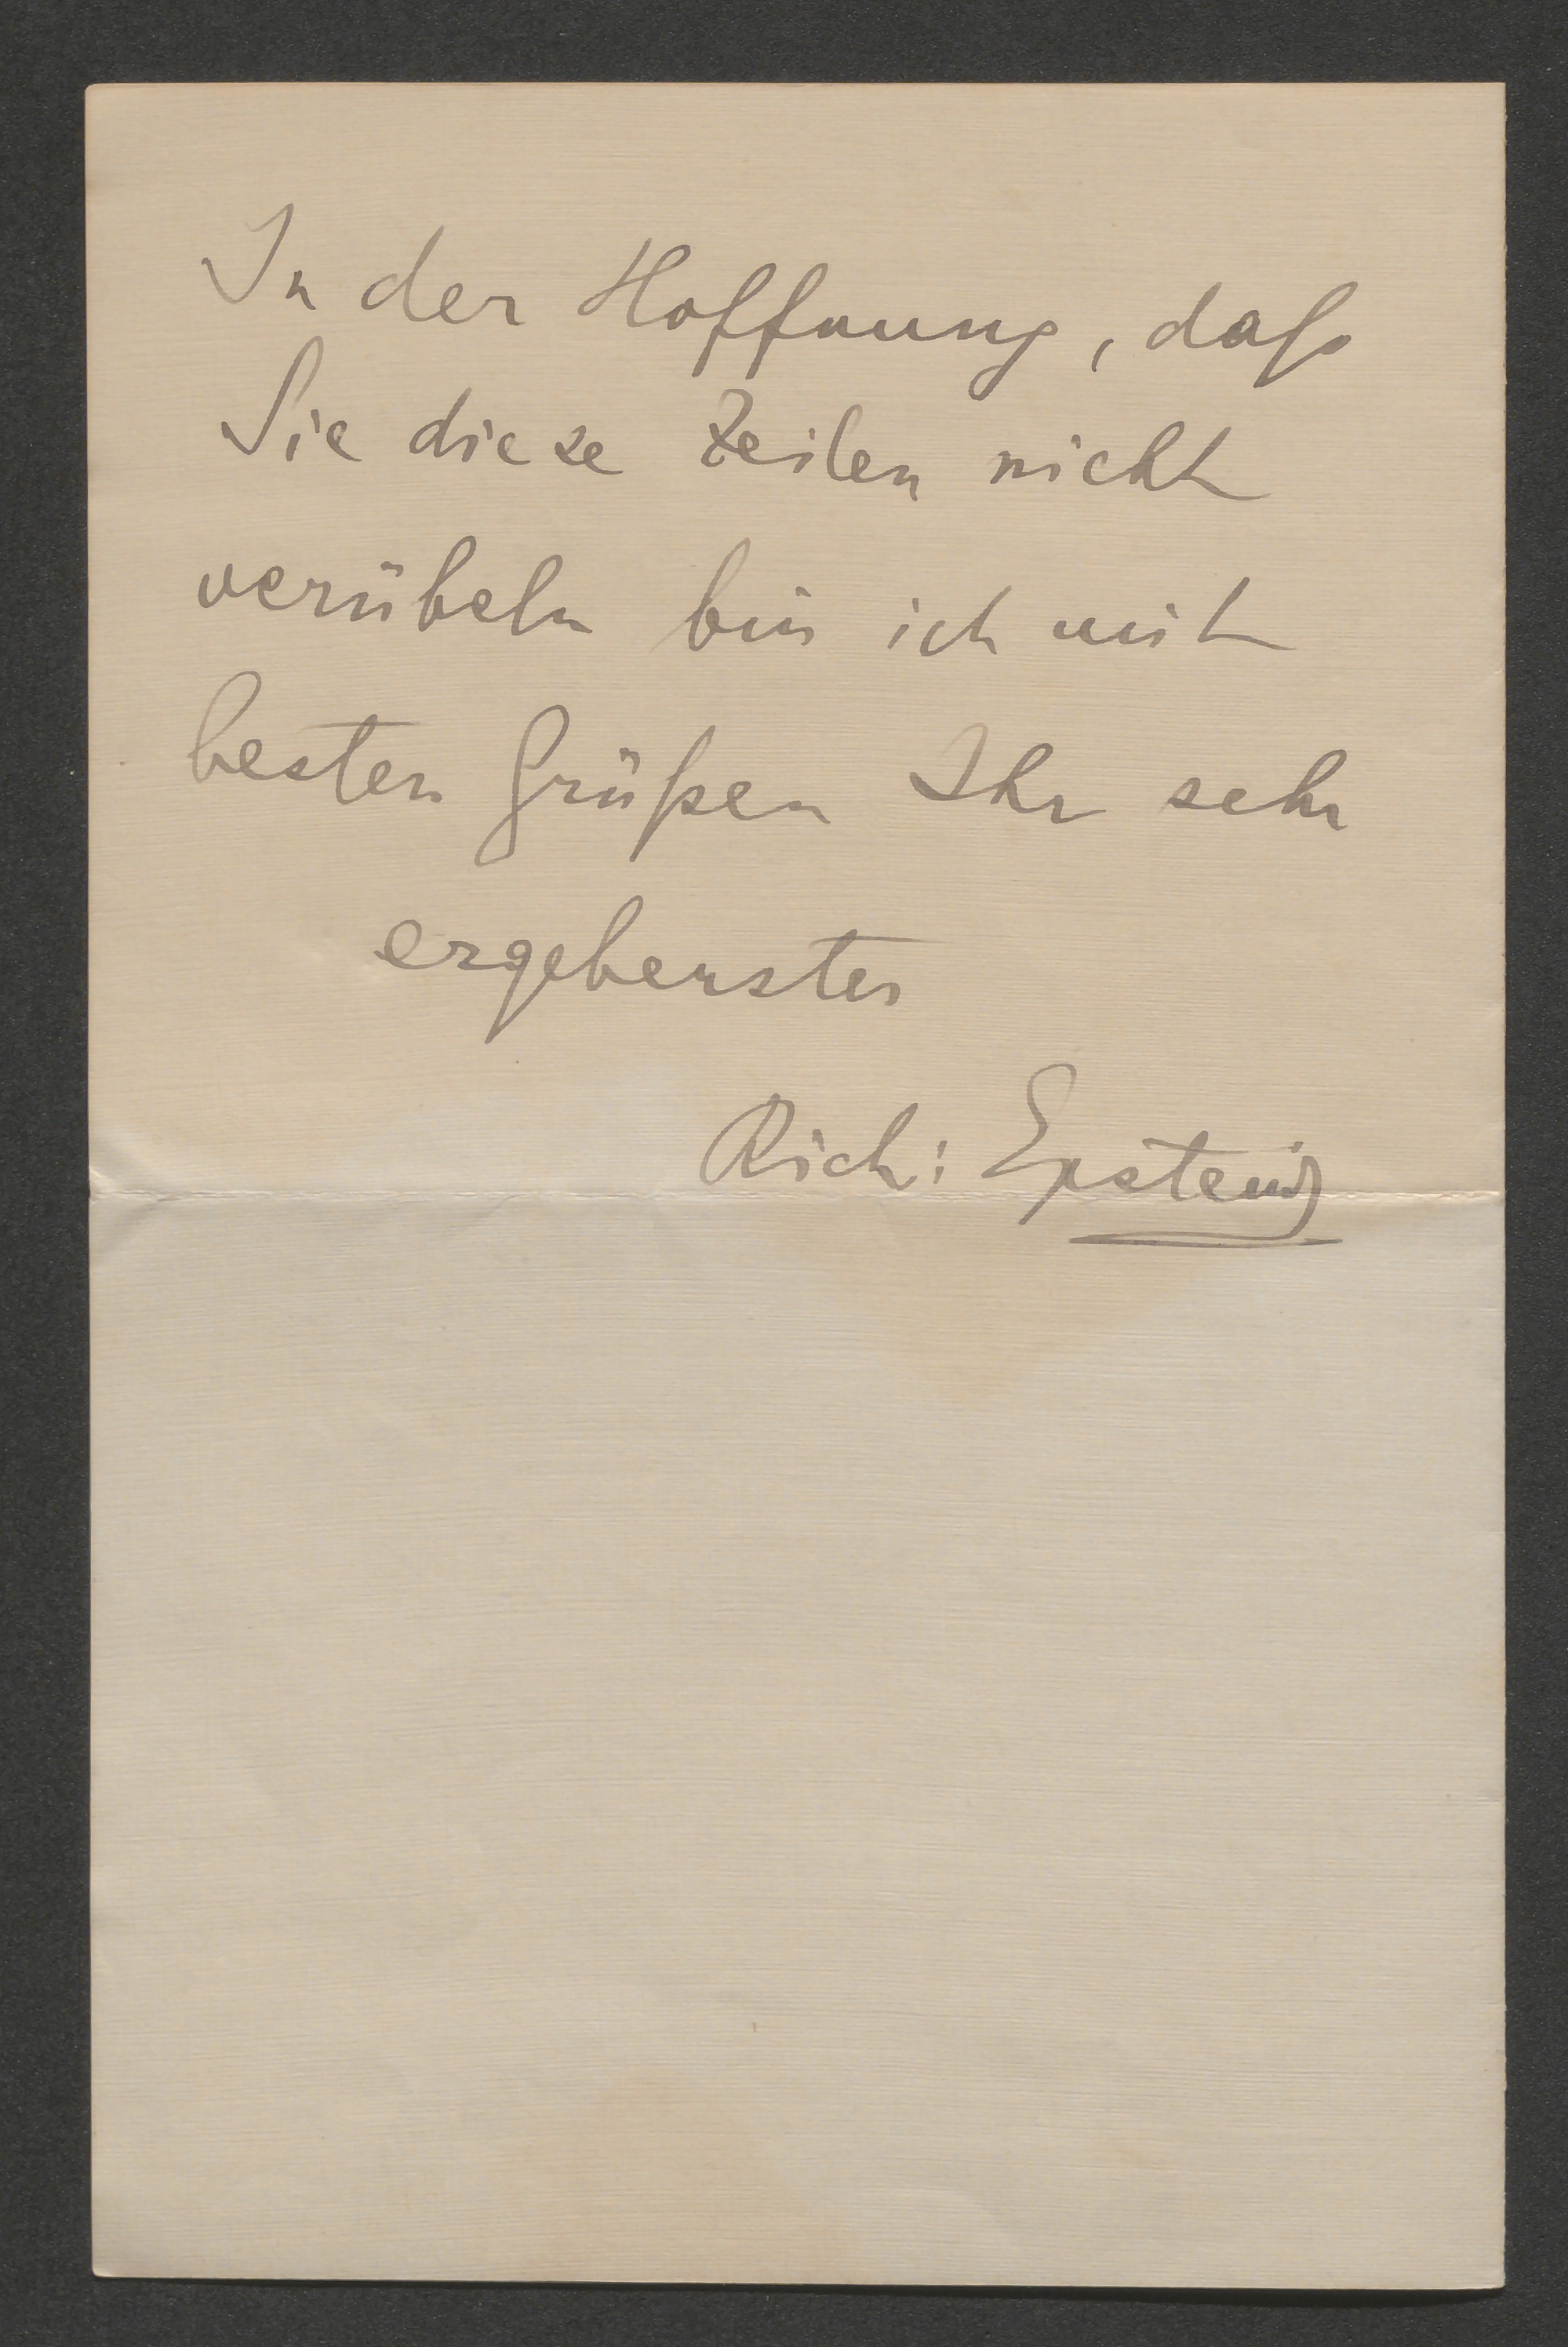 In der Hoffnung, daß
Sie diese Zeilen nicht
verübeln bin ich mit
besten Grüßen Ihr sehr
ergebenster
Rich: Epstein